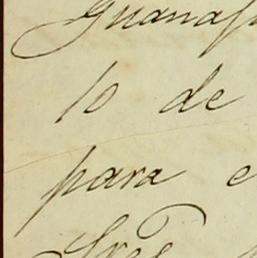 Guanaj
10 de
para e
Sres